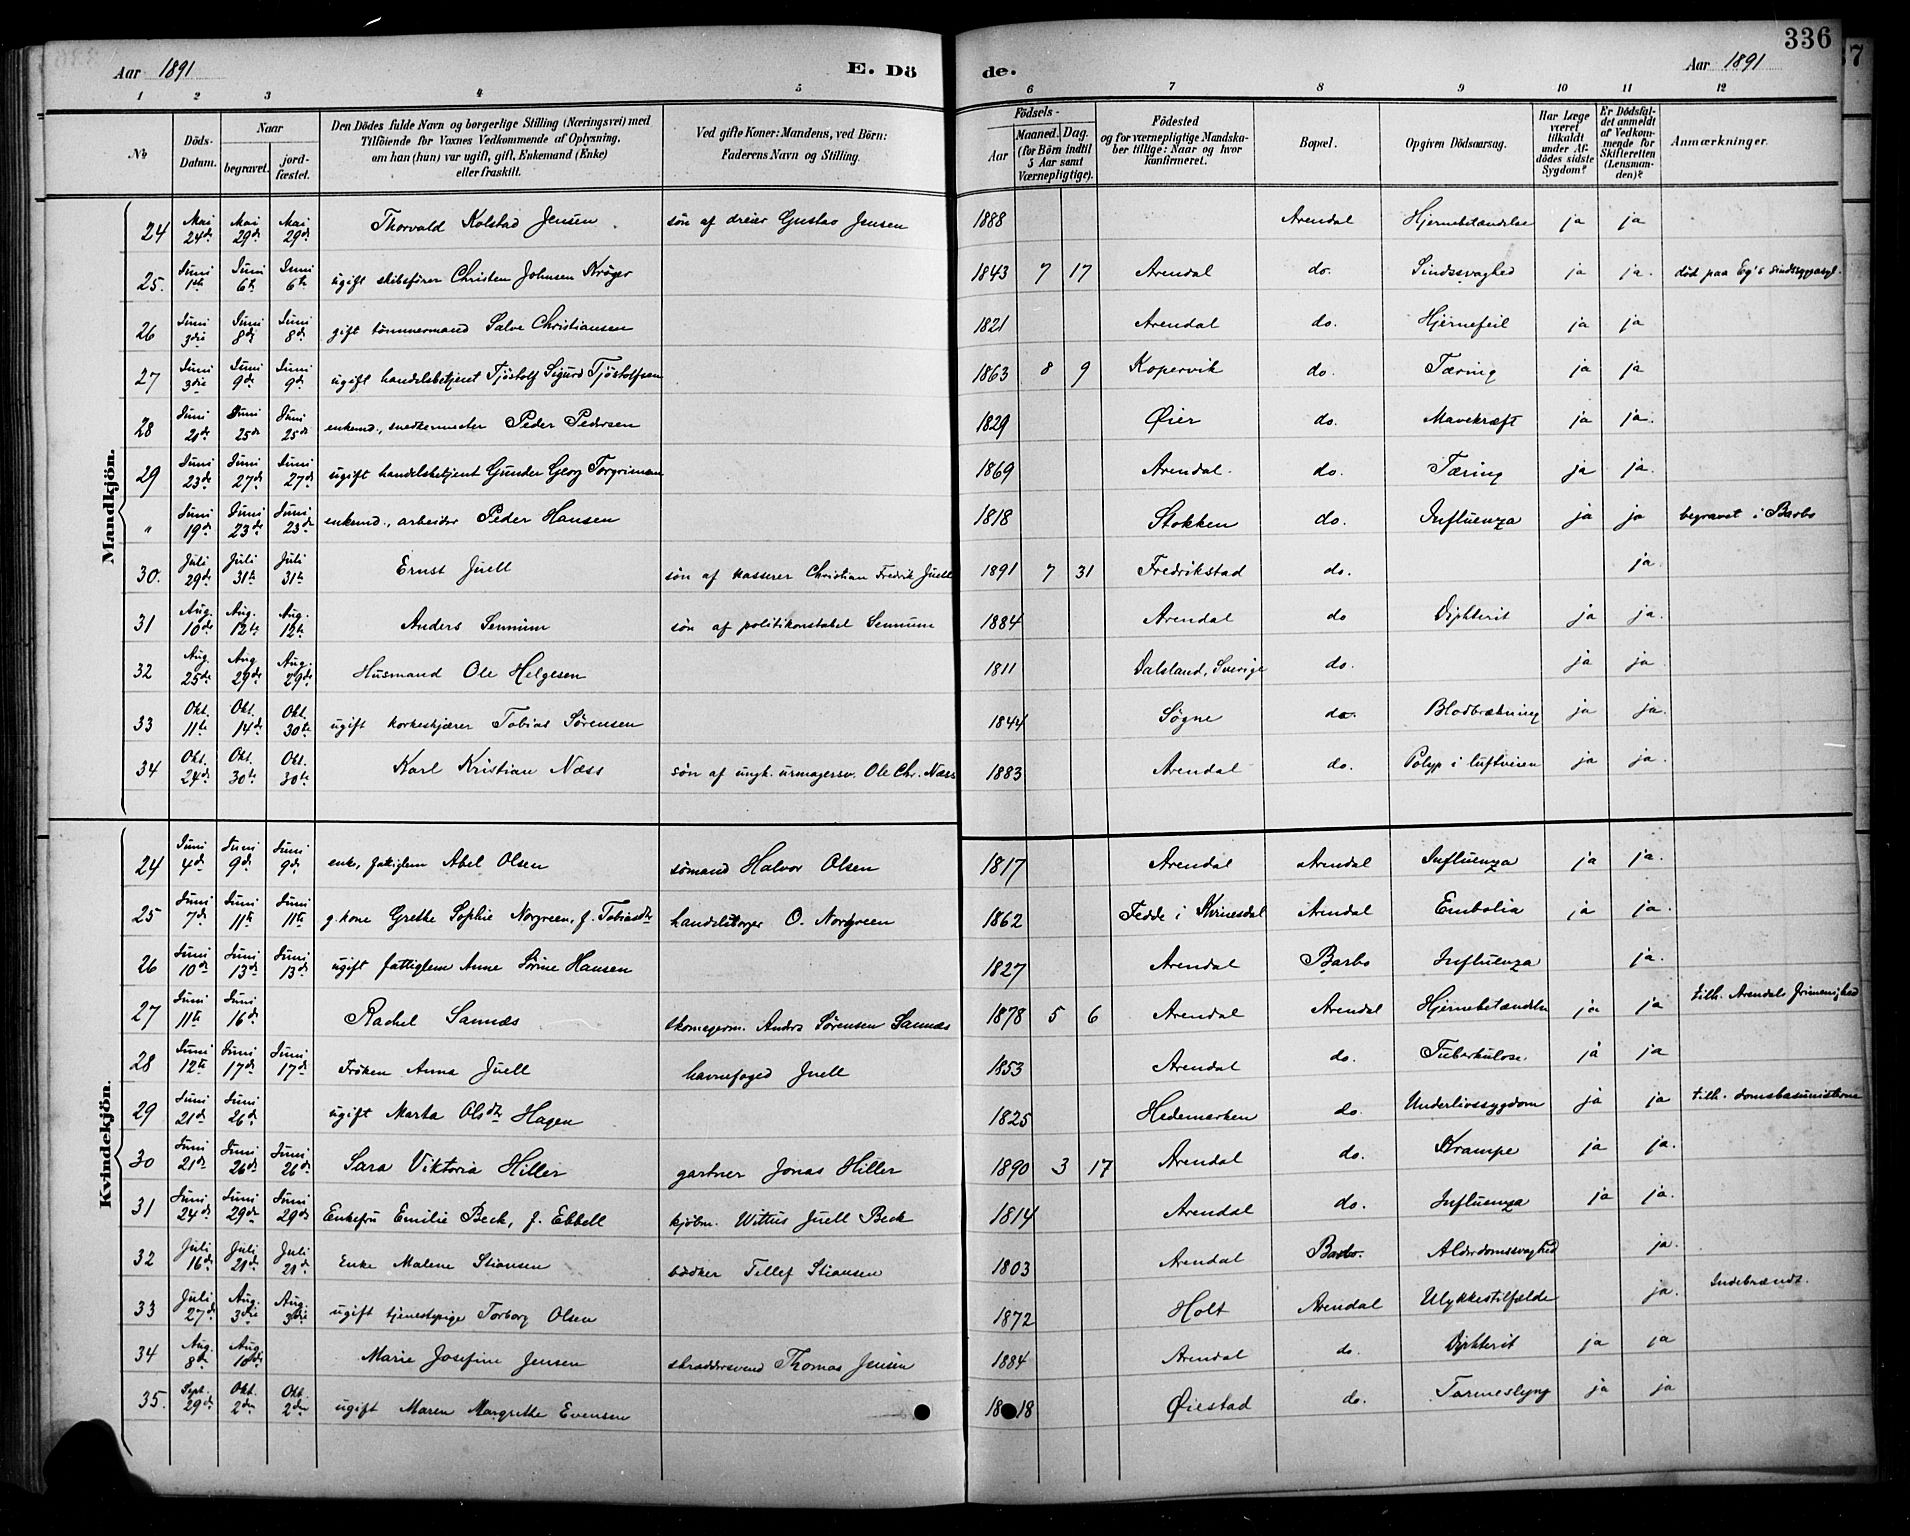 336
Aar 1891 E. Dö de. Aar 1891
1 2 3 4 5 6 7 8 9 10 11 12
No. Döds-Datum. Naar begravet. jordfæstet. Den Dödes fulde Navn og borgerlige Stilling (Næringsvei) med Tilföiende for Voxnes Vedkommende af Oplysning, om han (hun) var ugift, gift, Enkemand (Enke) eller fraskilt. Ved gifte Koner: Mandens, ved Börn: Faderens Navn og Stilling. Födsels- Aar Maaned. Dag. (for Börn indtil 5 Aar samt Værnepligtige). Födested og for værnepligtige Mandskaber tillige: Naar og hvor konfirmeret. Bopæl. Opgiven Dödsaarsag. Har Læge været tilkaldt under Afdödes sidste Sygdom? Er Dödsfaldet anmeldt af Vedkommende for Skifteretten (Lensmanden)? Anmærkninger.
Mandkjön.
24 Mai 24de Mai 29de Mai 29de Thorvald Kolstad Jensen søn af dreier Gustav Jensen 1888 Arendal Hjernebetændelse ja ja
25. Juni 1ste Juni 6te Juni 6te ugift skibsfører Christen Johnsen Krøger 1843 7 17 Arendal do. Sindssvaghed ja ja. død paa Eg's sindssygeasyl.
26 Juni 3die Juni 8de Juni 8de gift tømmermand Salve Christiansen 1821 Arendal do. Hjernefeil ja ja
27 Juni 3die Juni 9de Juni 9de ugift handelsbetjent Tjøstolf Sigurd Tjøstolfsen 1863 8 9 Kopervik do. Tæring ja ja
28 Juni 21de Juni 25de Juni 25de enkemd., snedkermester Peder Pedersen 1829 Øier do. Mavekræft ja ja.
29 Juni 23de Juni 27de Juni 27de ugift handelsbetjent Gunder Georg Torgrimsen 1869 Arendal. do. Tæring ja ja.
" Juni 19de Juni 23de Juni 23de enkemd., arbeider Peder Hansen 1818 Stokken do. Influenza ja ja begravet i Barbo
30. Juli 29de Juli 31te Juli 31te Ernst Juell søn af kasserer Christian Fredrik Juell 1891 7 31 Fredrikstad do. ja.
31 Aug. 10de Aug. 12te Aug. 12te Anders Sennum søn af politikonstabel Sennum 1884 Arendal do Diphterit ja ja.
32 Aug. 25de Aug. 29de Aug. 29de Husmand Ole Helgesen 1811 Dalsland, Sverige do. ja ja
33 Okt. 11te Okt. 14de Okt. 30te ugift korkeskjærer Tobias Sørensen 1844 Søgne do. Blodbrækning ja ja.
34 Okt. 24de Okt. 30te Okt. 30te Karl Kristian Næss søn af ungk. urmagersv. Ole Chr. Næss 1883 Arendal do. Polyp i luftveien ja ja.
Kvindekjön.
24 Juni 4de Juni 9de Juni 9de enke, fattiglem Abel Olsen sømand Halvor Olsen 1817 Arendal Arendal Influenza ja ja.
25 Juni 7de Juni 11te Juni 11te g. kone Grethe Sophie Norgreen, f. Tobiasdtr handelsborger O. Norgreen 1862 Fedde i Kvinesdal Arendal Embolia ja ja.
26 Juni 10de Juni 13de Juni 13de ugift fattiglem Anne Sørine Hansen 1827 Arendal Barbo Influenza ja.
27 Juni 11te Juni 16de Rachel Sannæs skomagerm. Anders Sørensen Sannæs 1878 5 6 Arendal Arendal Hjernebetændelse ja ja tilh. Arendals frimenighed
28 Juni 12te Juni 17de Juni 17de Frøken Anna Juell havnefoged Juell 1853 Arendal do. Tuberkulose. ja ja
29 Juni 21de Juni 26de ugift Marta Olsdtr Hagen 1825 Hedemarken do. Underlivssygdom ja ja tilh.
30 Juni 21de Juni 26de Juni 26de Sara Viktoria Hiller gartner Jonas Hiller 1890 3 17 Arendal do. Krampe ja ja.
31 Juni 24de Juni 29de Juni 29de Enkefru Emilie Beck, f. Ebbell kjøbm. Wittus Juell Beck 1814 Arendal do. Influenza ja ja.
32 Juli 16de Juli 21de Juli 21de Enke Malene Stiansen bødker Tellef Stiansen 1803 Arendal Barbo. Alderdomssvaghed ja.
33 Juli 27de Aug. 3die Aug. 3die ugift tjenestepige Torborg Olsen 1872 Holt Arendal Ulykkestilfælde ja. Indebrændt.
34 Aug. 8de Aug. 10de Marie Josefine Jensen skræddersvend Thomas Jensen 1884 Arendal do. Diphterit ja ja
35. Sept. 29de Okt. 2den Okt. 2den ugift Maren Margrethe Evensen 1818 Øiestad do. Tarmeslyng ja ja